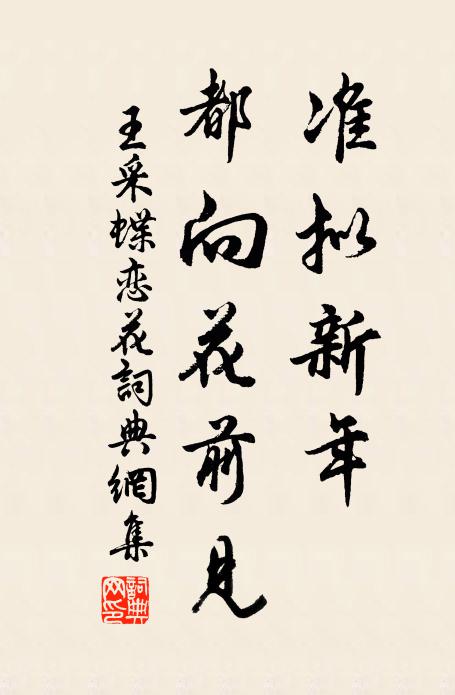 准拟新年
都向花前見
王采蝶恋花詞典網集
詞典網印